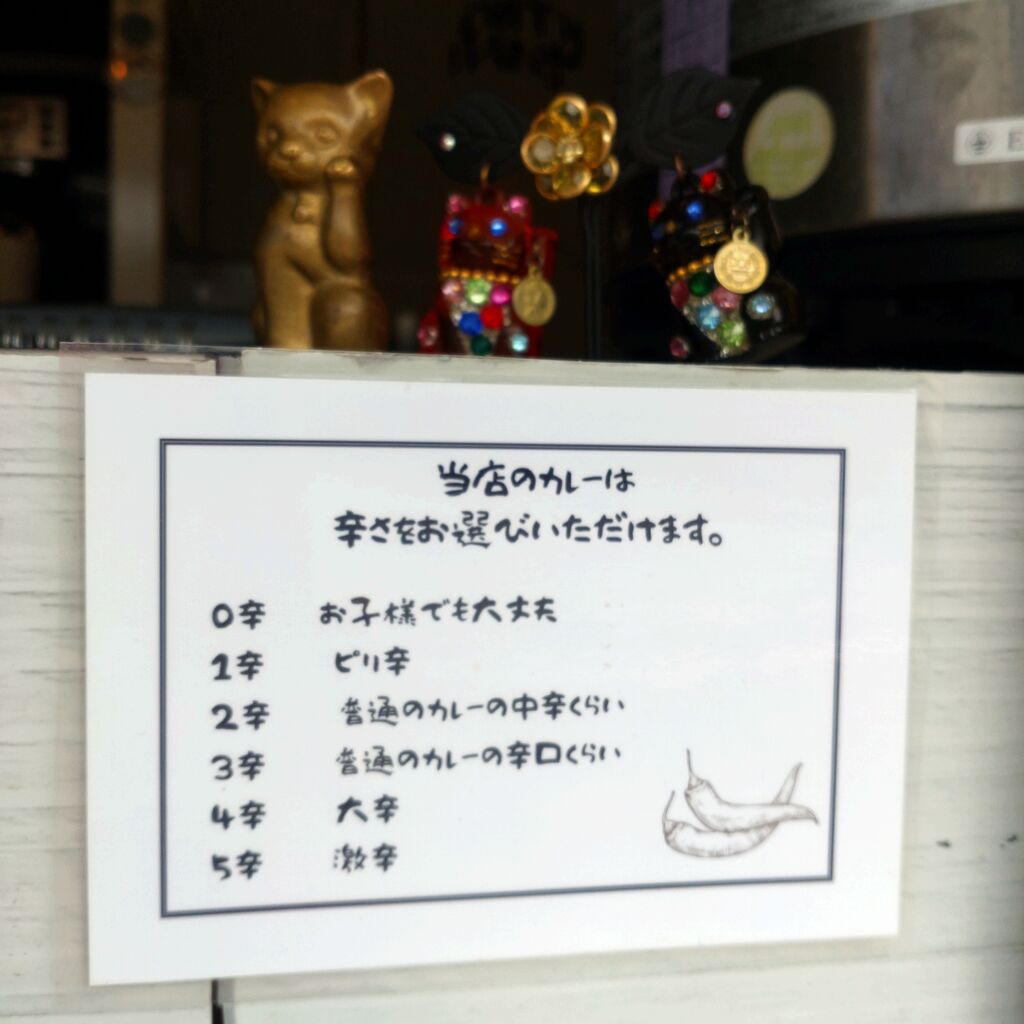 当店のカレーは
辛さをお選びいただけます。
0辛 お子様でも大丈夫
1辛 ピリ辛
2辛 普通のカレーの中辛くらい
3辛 普通のカレーの辛口くらい
4辛 大辛
5辛 激辛